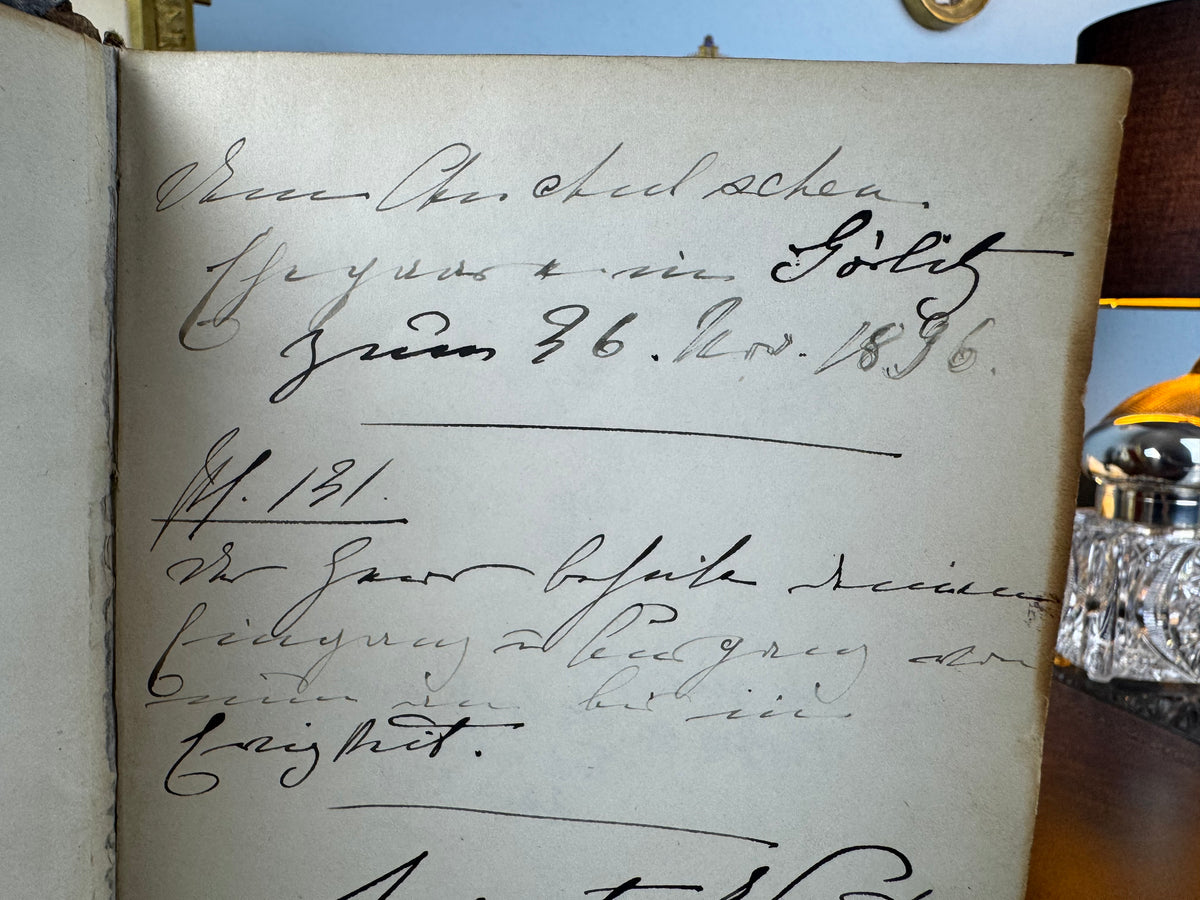 Dem
Ehepaare in Görlitz
zum 26. Nov. 1896.
Ps. 121.
Der Herr behüte deinen
Eingang u Ausgang von
nun an bis in
Ewigkeit.